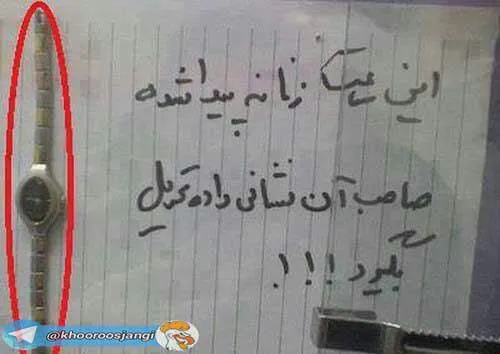 این ساعت زنانه پیدا شده
صاحب آن نشانی داده تحویل
بگیرد !!!
@khooroosjangi